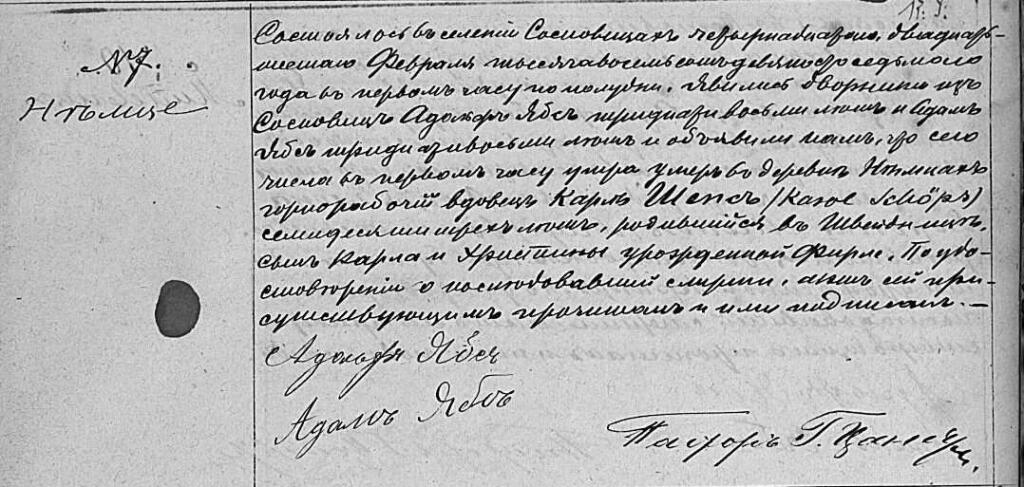 № 7.
Нѣмце
Состоялось въ селеніи Сосновицахъ четырнадцатаго, двадцать-
шестаго Февраля тысяча восемьсотъ девяносто седьмого
года въ первомъ часу по полудни. Явились дворники изъ
Сосновицъ Адольфъ Ябсъ тридцати восьми лѣтъ и Адамъ
Ябсъ тридцати восьми лѣтъ и объявили намъ, что сего
числа въ первомъ часу утра умеръ въ деревнѣ Нѣмцахъ
горнорабочій вдовецъ Карлъ Шепсъ /Karol Schöps/
семидесяти трехъ лѣтъ, родившійся въ Швейдницѣ,
сынъ Карла и Христины урожденной Фирле. По удо-
стовѣреніи о послѣдовавшей смерти, актъ сей при-
сутствующимъ прочитанъ и ими подписанъ. —
Адольфъ Ябсъ
Адамъ Ябсъ
Пасторъ Г.